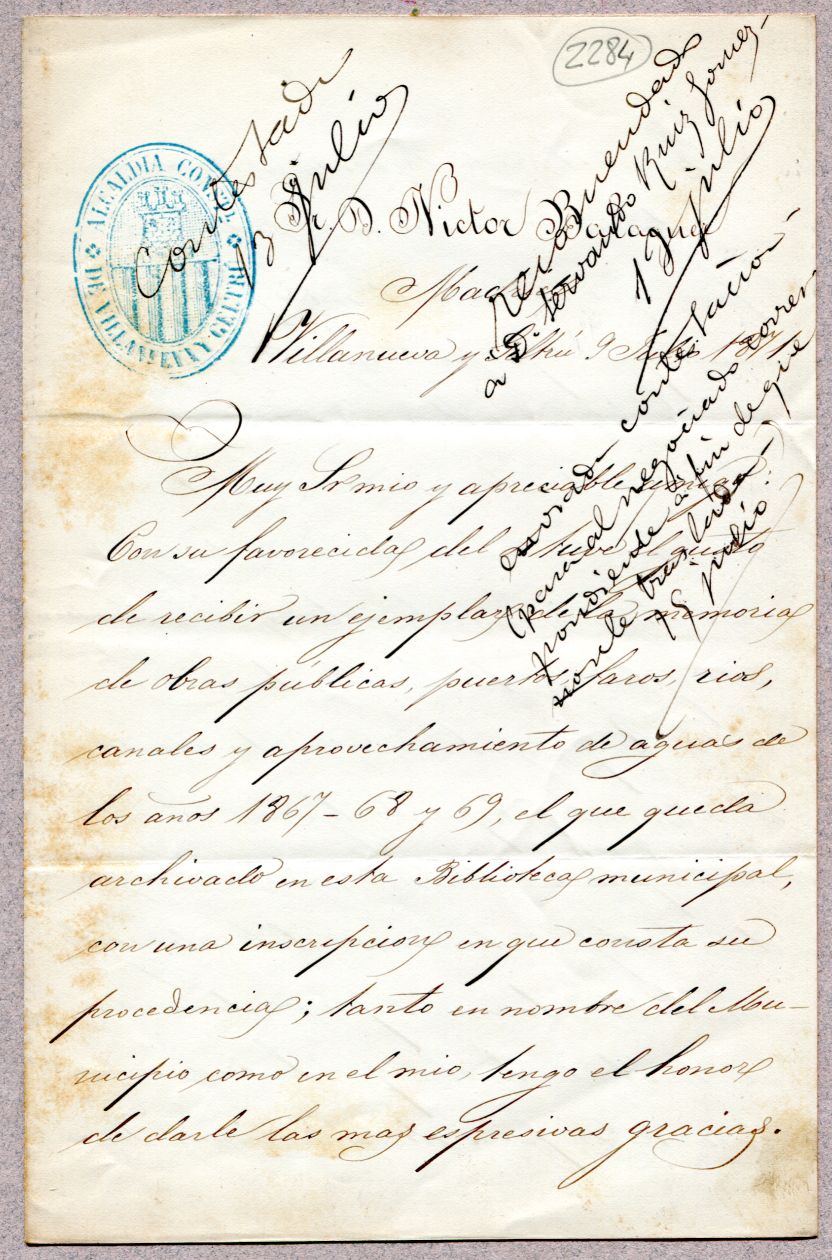 2284
ALCALDIA CONST.
DE VILLANUEVA Y GELTRÚ
Contestada
13 Julio
Recomendada
a D. Servando Ruiz Gomez
13 julio
Sr. D. Victor Balaguer
Madrid
Villanueva y Geltrú 9 Julio 1871
enviada contestacion
para al negociado corres
pondiente á fin de que
se le traslada
15 julio
Muy Sr mio y apreciable amigo:
Con su favorecida del tuve el gusto
de recibir un ejemplar de la memoria
de obras públicas, puertos, faros, rios,
canales y aprovechamiento de aguas de
los años 1867-68 y 69, el que queda
archivado en esta Biblioteca municipal,
con una inscripcion en que consta su
procedencia; tanto en nombre del Mu-
nicipio como en el mio, tengo el honor
de darle las mas espresivas gracias.